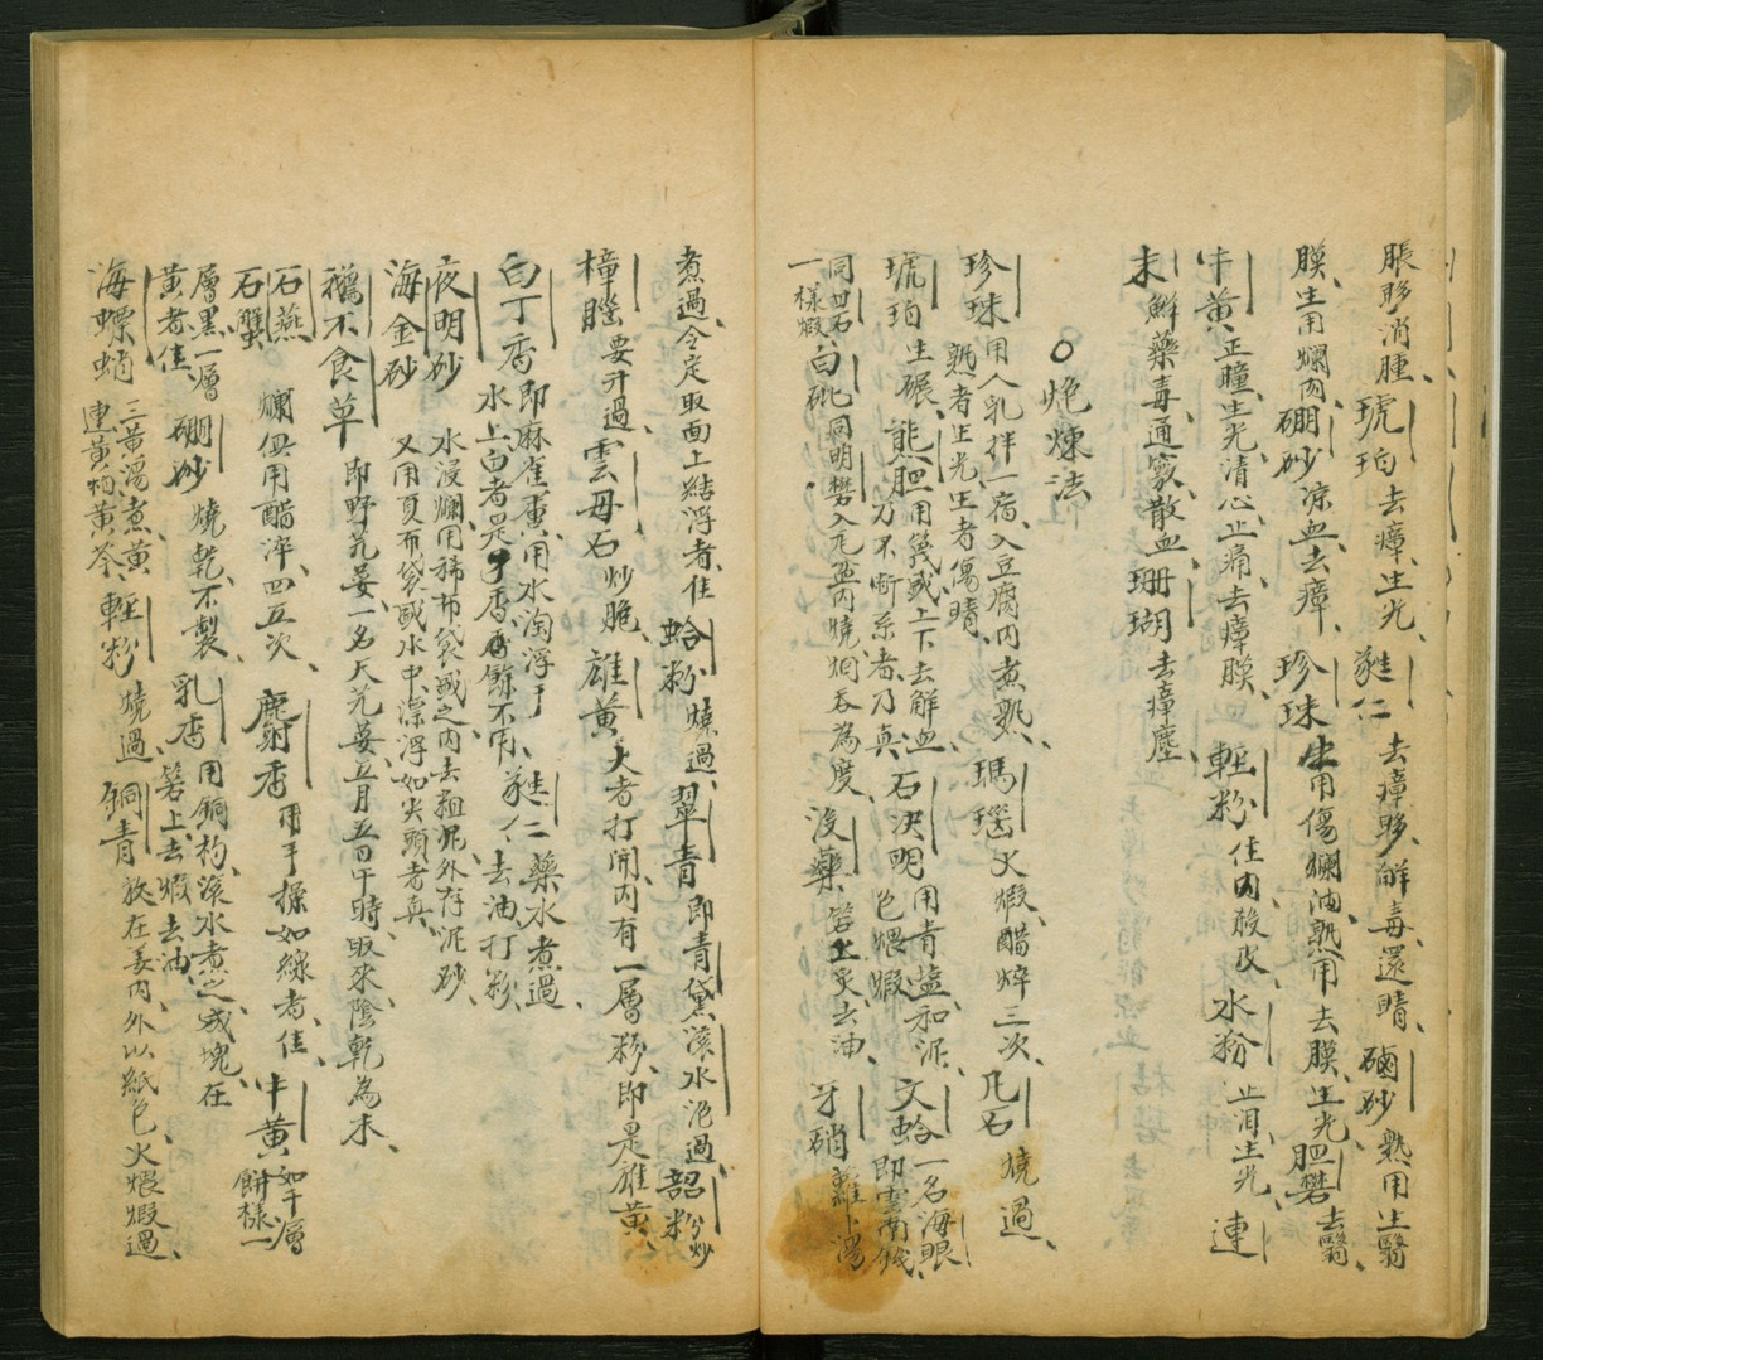 脹眵消腫、琥珀去瘴、生光、蕤仁去瘴眵、解毒、還睛、磠砂熟用生翳
膜、生用爛肉、硼砂涼血、去瘴、珍珠生用傷爛、油熟用去膜、生光、胆礬去翳、
牛黃正瞳、生光、清心、止痛、去瘴膜、輕粉住肉殺疔、水粉止淚、生光、連
末解藥毒、通竅、散血、珊瑚去瘴塵、
○炮煉法
珍珠用人乳拌一宿、入豆腐内煮熟、瑪瑙火煅、醋焠三次、凡石燒過、
熟者生光、生者傷睛、
琥珀生碾、熊胆用篾或上下去解血、石決明用青盐和泥、文蛤一名海眼
刀不斷糸者乃真、色煨煅、即雲南錢、
同㽞石白砒同明礬入瓦盃内燒烟吞為度、没藥箬上炙去油、牙硝蘿卜湯
一樣煅、
煮過、令定取面上結浮者佳、蛤粉燒過、翠青即青黛滚水泡過、韶粉炒
樟腦要升過、雲母石炒脆、雄黃大者打開、内有一層粉、即是雄黃、
白丁香即麻雀糞、用水淘浮于水上白者是丁香、餘不用、蕤仁二藥水煮過、去油打粉、
夜明砂水浸爛、用稀布袋或之内去粗泥、外存泥砂、
海金砂又用夏布袋或水中漂浮如尖頭者真、
鵝不食草即野芫荽、一名天芫荽、五月五日午時取來陰乾為末、
石燕
石蟹爛俱用醋淬四五次、麝香用手揉如線者佳、牛黃如千層餅樣一
層黑一層黃者佳、硼砂燒乾、不製、乳香用銅杓滚水煮之成塊、在箬上去煅去油、
海螵蛸三黃湯煮、黃連黃柏黃芩、輕粉燒過、銅青放在姜内、外以紙包、火煨煅過、